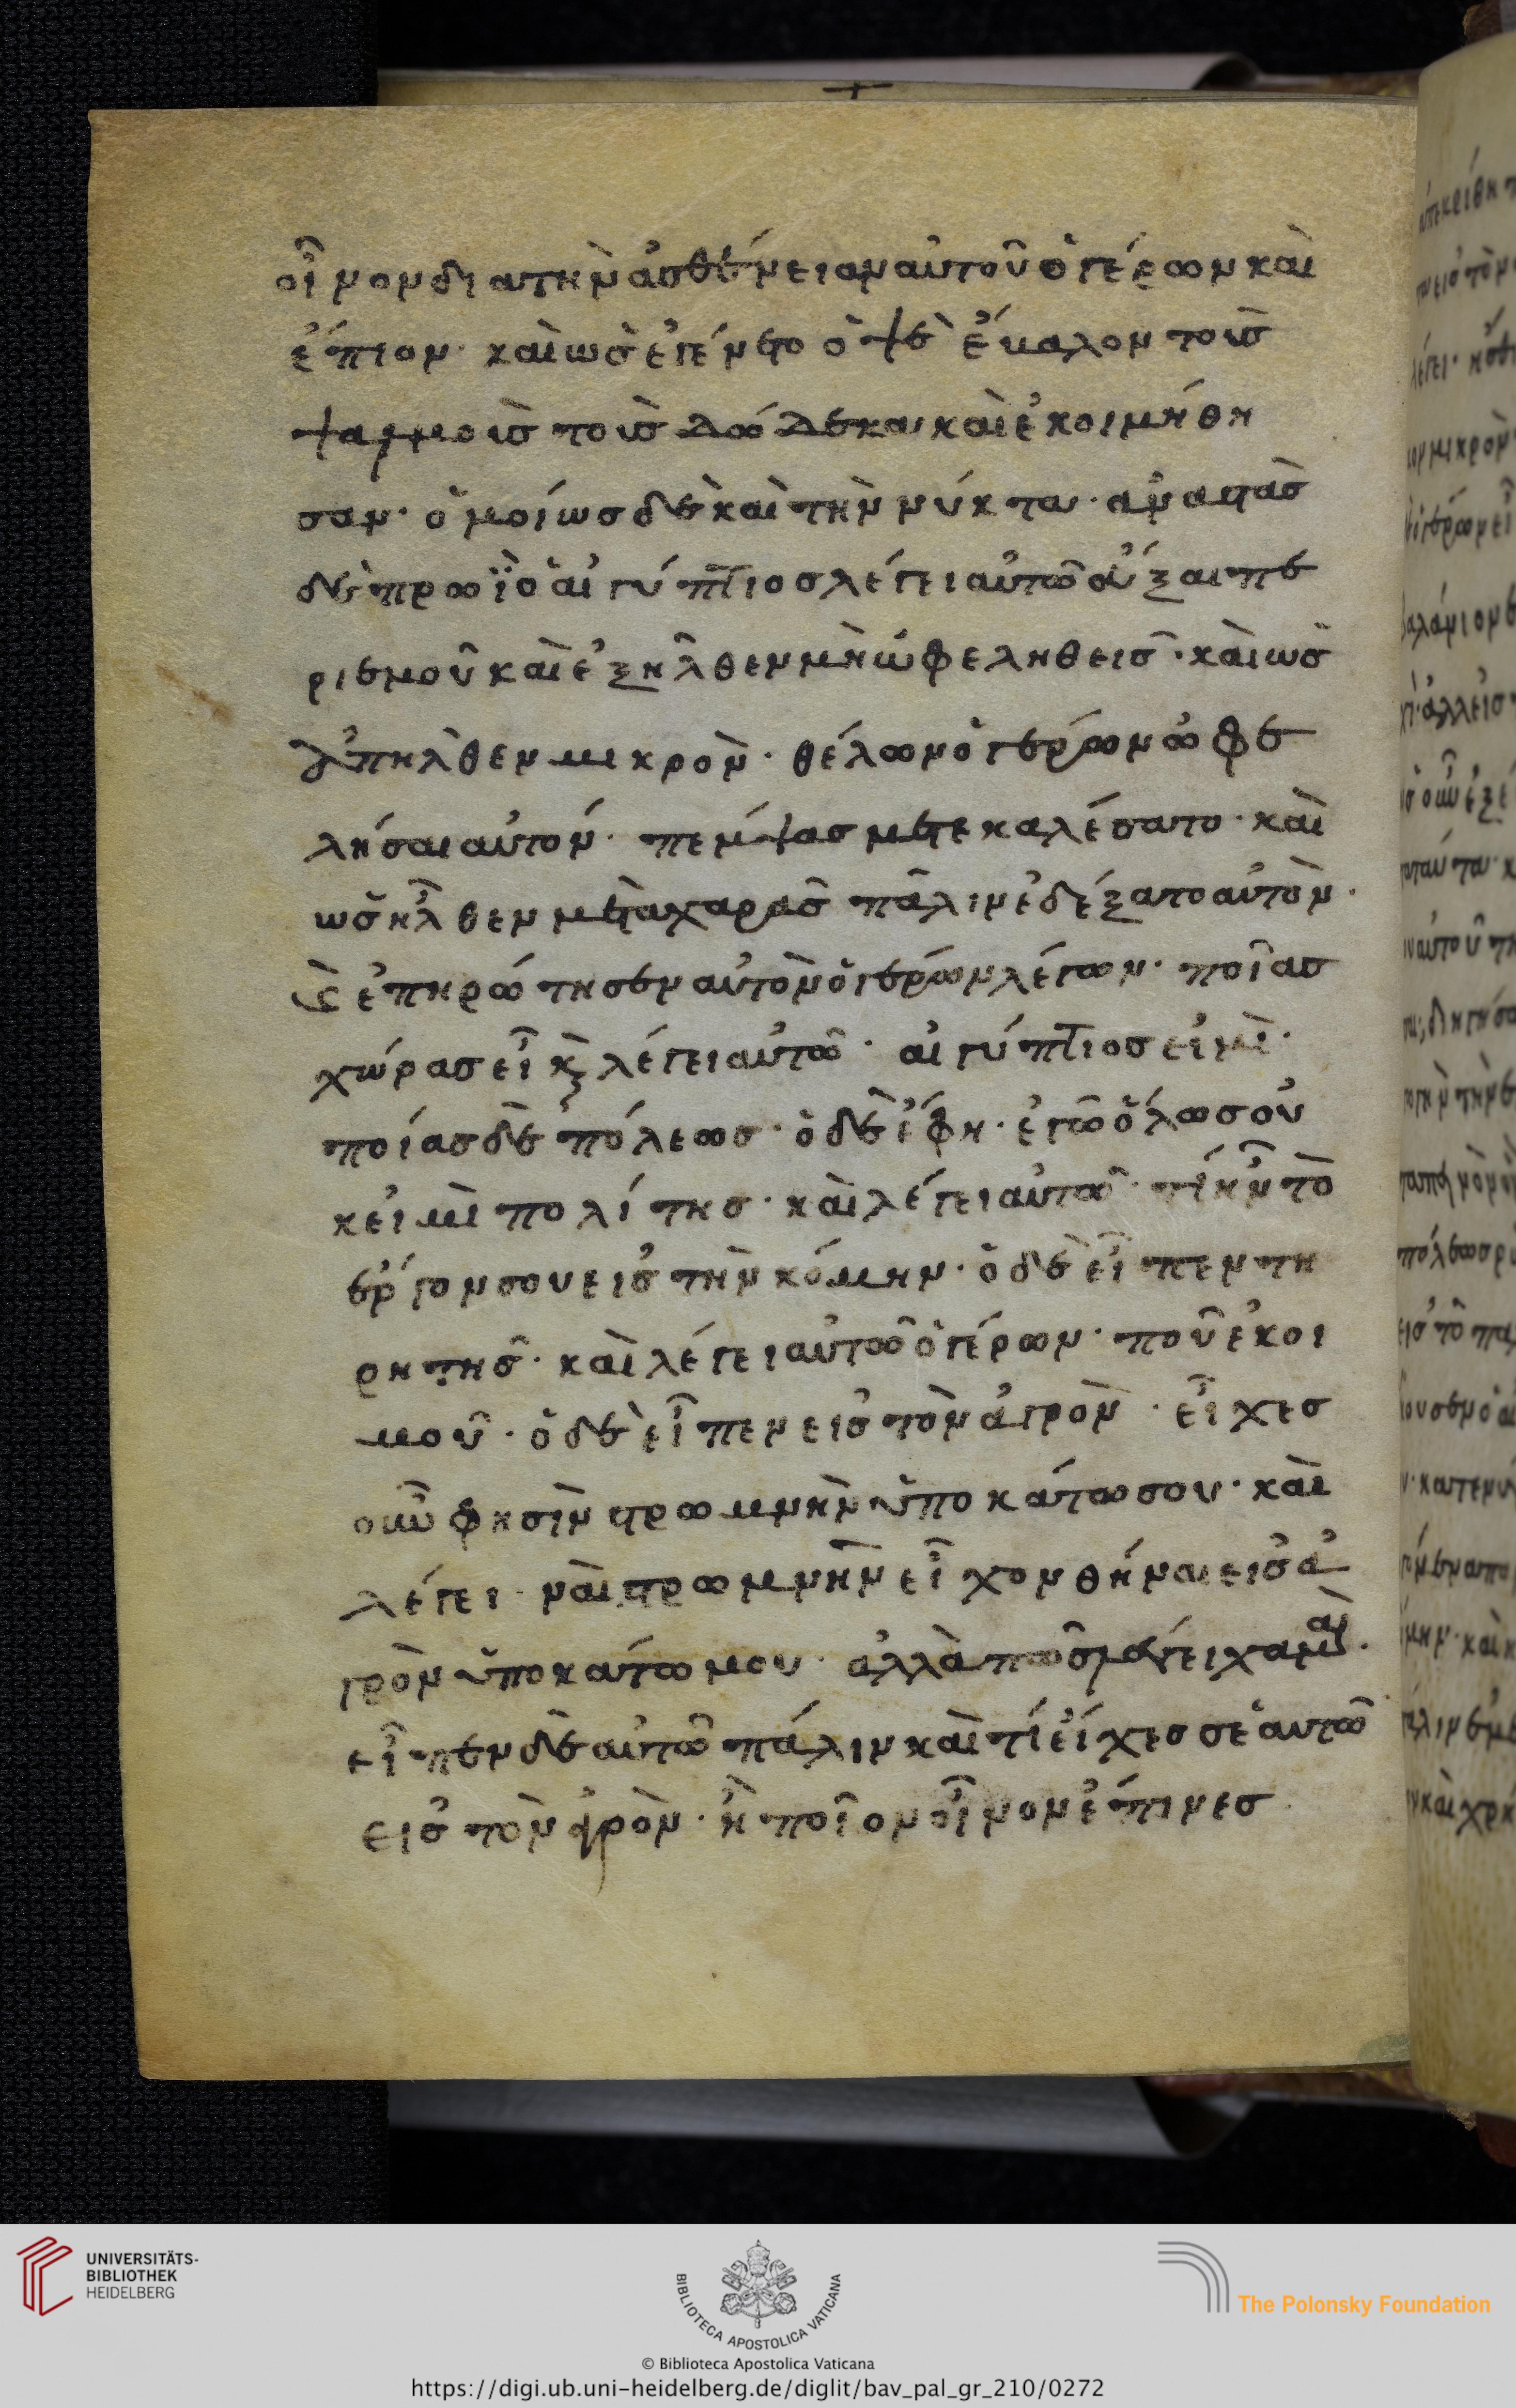 οἶνον διὰ τὴν ἀσθένειαν αὐτοῦ ὁ γέρων καὶ
ἔπιον· καὶ ὡς ἐγένετο ὀψὲ ἔβαλον τοὺς
ψαλμοὺς τοὺς δώδεκα καὶ ἐκοιμήθη
σαν· ὁμοίως δὲ καὶ τὴν νύκτα· ἀναστὰς
δὲ πρωῒ ὁ αἰγύπτιος λέγει αὐτῶ εὖξαι πε
ρὶ ἐμοῦ καὶ ἐξῆλθεν μὴ ὠφεληθείς· καὶ ὡς
ἀπῆλθεν μικρὸν· θέλων ὁ γέρων ὠφε
λῆσαι αὐτόν· πέμψας μετεκαλέσατο· καὶ
ὡς ἦλθεν μετὰ χαρᾶς πάλιν ἐδέξατο αὐτὸν·
καὶ ἐπηρώτησεν αὐτὸν ὁ γέρων λέγων· ποίας
χώρας εἶ καὶ λέγει αὐτῶ· αἰγύπτιος εἰμὶ·
ποίας δὲ πόλεως· ὁ δὲ ἔφη· ἐγὼ ὅλως οὐ
κ εἰμὶ πολίτης· καὶ λέγει αὐτῶ· τί ἦν τὸ
ἔργον σου εἰς τὴν κώμην· ὁ δὲ εἶπεν τη
ρητής· καὶ λέγει αὐτῶ ὁ γέρων· ποῦ ἐκοι
μοῦ· ὁ δὲ εἶπεν εἰς τὸν ἀγρὸν· εἶχες
οὖν φησὶν στρωμνὴν ὑποκάτω σου· καὶ
λέγει· ναὶ στρωμνὴν εἶχον θῆναι εἰς ἀ
γρὸν ὑποκάτω μου· ἀλλὰ πῶς λέγει χαμαὶ·
εἶπεν δὲ αὐτῶ πάλιν καὶ τί εἶχες σεαυτῶ
εἰς τὸν ἀγρὸν· ἢ ποῖον οἶνον ἔπινες
UNIVERSITÄTS-
BIBLIOTHEK
HEIDELBERG
BIBLIOTECA APOSTOLICA VATICANA
The Polonsky Foundation
© Biblioteca Apostolica Vaticana
https://digi.ub.uni-heidelberg.de/diglit/bav_pal_gr_210/0272